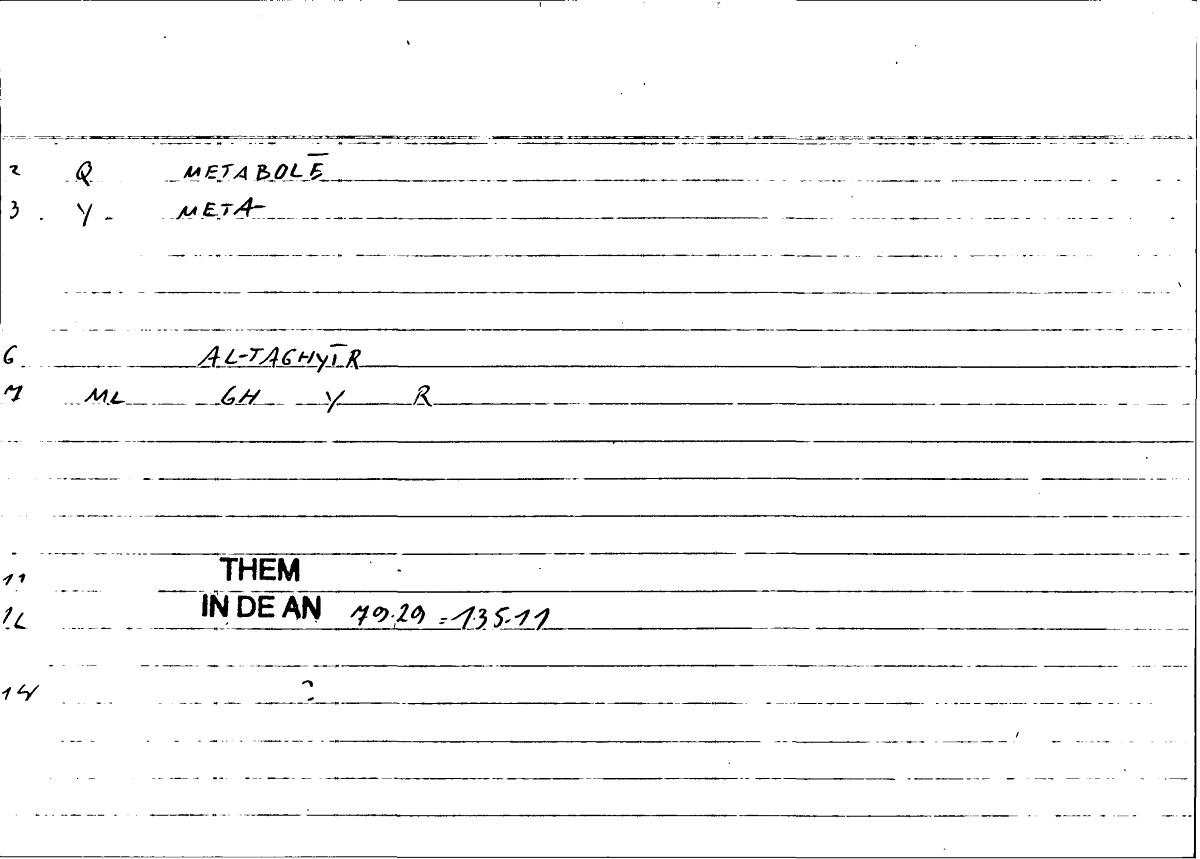 2 Q METABOLĒ
3. Y. META
6 AL-TAGHYĪR
7 ML GH Y R
11 THEM
12 IN DE AN 79.29 = 135.11
14 ?